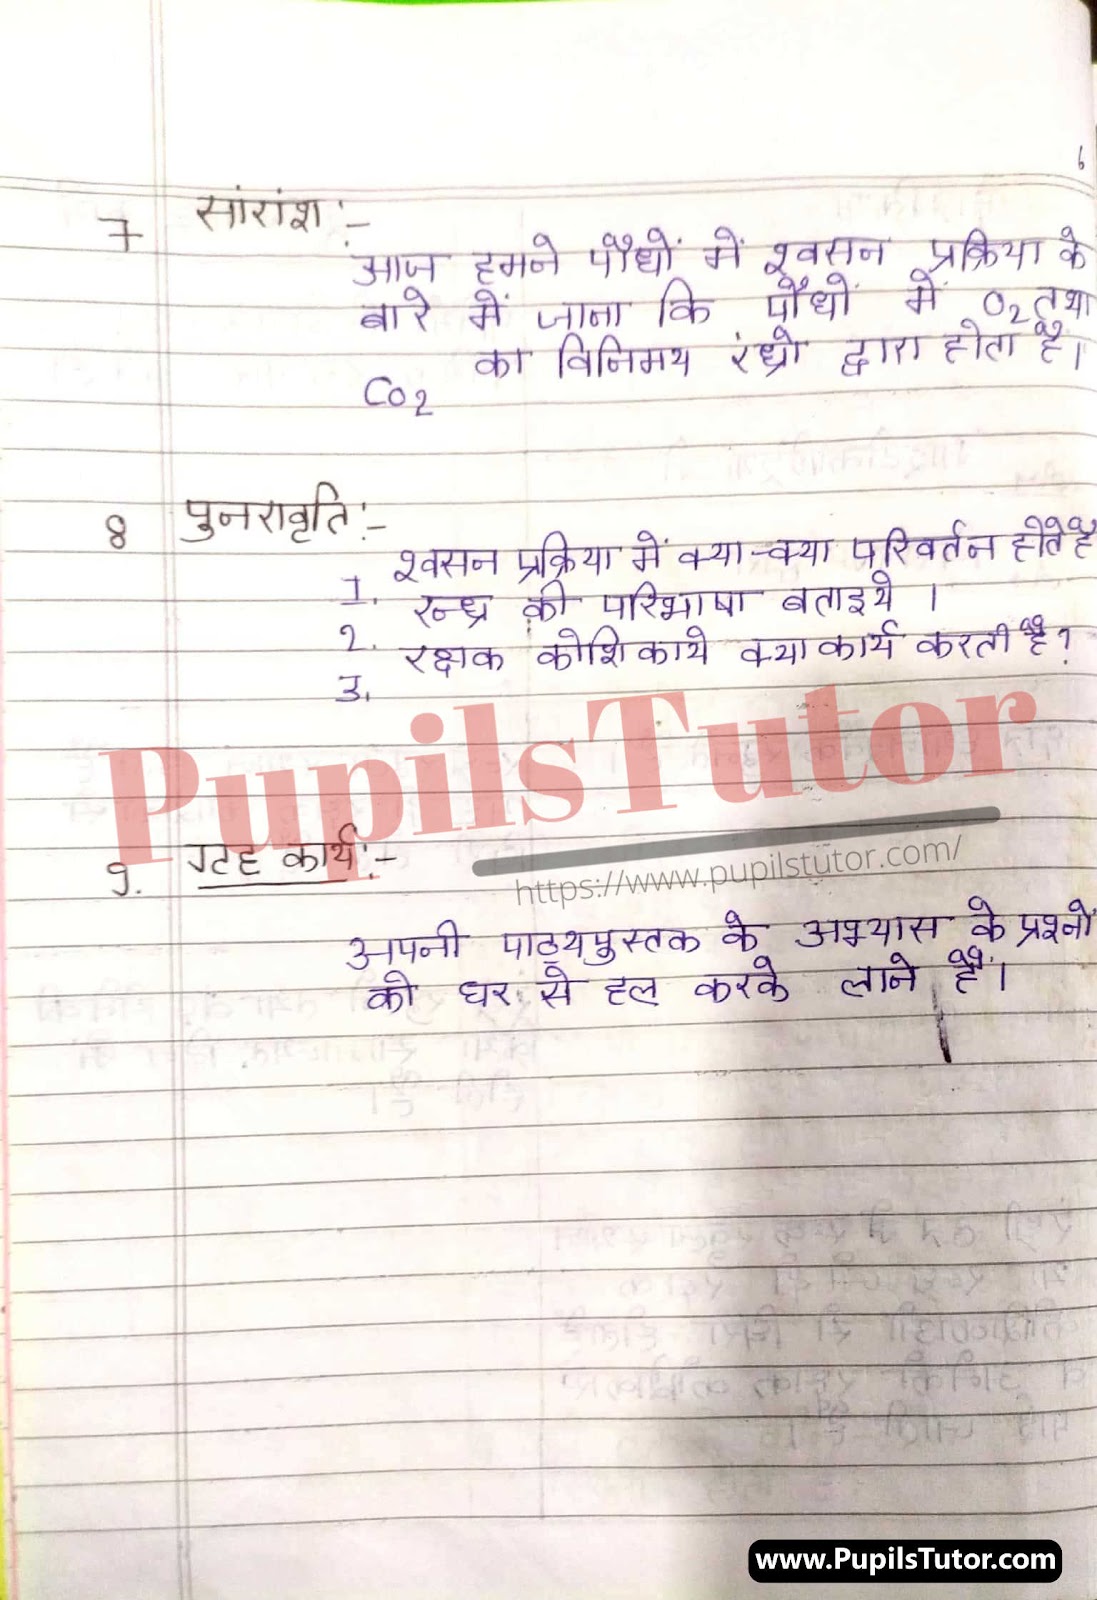 6
7 सांरांश :-
आज हमने पौधों में श्वसन प्रक्रिया के
बारे में जाना कि पौधों में O2 तथा
CO2 का विनिमय रंध्रो द्वारा होता है।
8 पुनरावृति :-
1. श्वसन प्रक्रिया में क्या-क्या परिवर्तन होते है
2. रन्ध्र की परिभाषा बताइये ।
3. रक्षक कोशिकाये क्या कार्य करती है ?
PupilsTutor
https://www.pupilstutor.com/
9. गृह कार्य :-
अपनी पाठ्यपुस्तक के अभ्यास के प्रश्नों
को घर से हल करके लाने हैं।
www.PupilsTutor.com